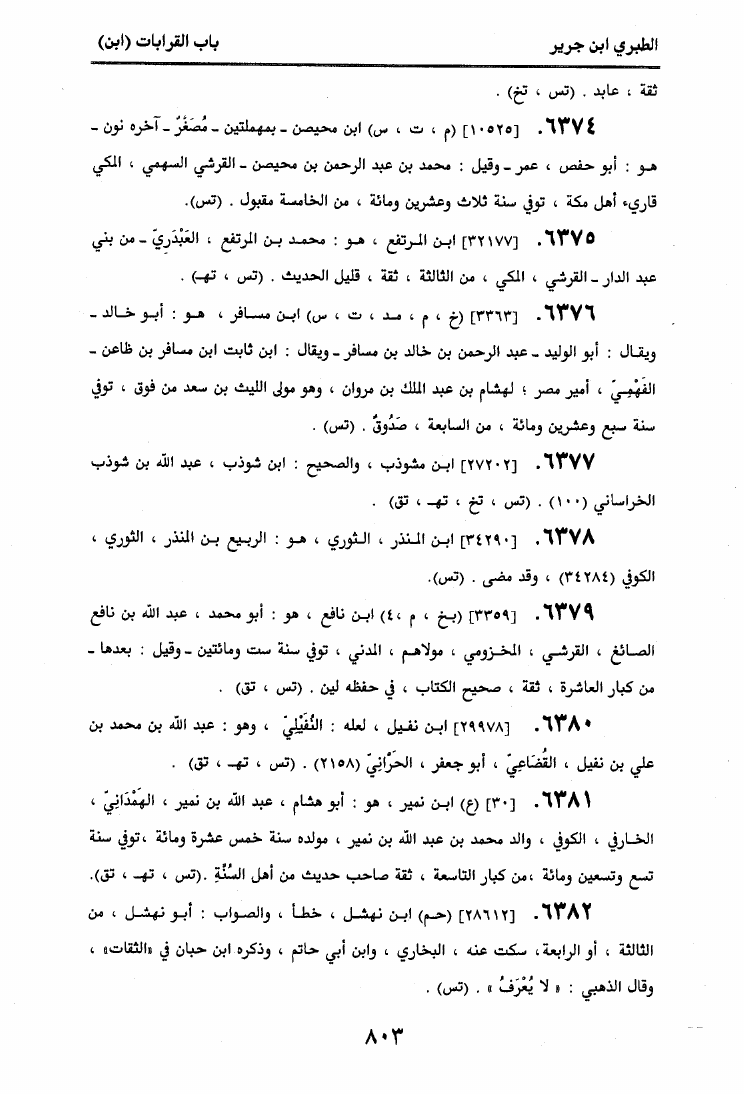 الطبري ابن جرير
باب القرابات (ابن)
ثقة ، عابد . (تس ، تخ) .
٦٣٧٤. [١٠٥٢٥] (م ، ت ، س) ابن محيصن ـ بمهملتين ـ مُصَغَّرٌ ـ آخره نون ـ
هـو : أبو حفص ، عمر ـ وقيل : محمد بن عبد الرحمن بن محيصن ـ القرشي السهمي ، المكي
قاريء أهل مكة ، توفي سنة ثلاث وعشرين ومائة ، من الخامسة مقبول . (تس).
٦٣٧٥. [٣٢١٧٧] ابـن المـرتفع ، هـو : محمـد بـن المرتفع ، العَبْدَرِيّ ـ من بني
عبد الدار ـ القرشي ، المكي ، من الثالثة ، ثقة ، قليل الحديث . (تس ، تهـ) .
٦٣٧٦. [٣٣٦٣] (خ ، م ، مـد ، ت ، س) ابـن مسـافر ، هـو : أبـو خـالد ـ
ويقـال : أبو الوليد ـ عبد الرحمن بن خالد بن مسافر ـ ويقال : ابن ثابت ابن مسافر بن ظاعن ـ
الفَهْمِـيّ ، أمير مصر ؛ لهشام بن عبد الملك بن مروان ، وهو مولى الليث بن سعد من فوق ، توفي
سنة سبع وعشرين ومائة ، من السابعة ، صَدُوقٌ . (تس) .
٦٣٧٧. [٢٧٢٠٢] ابـن مشوذب ، والصحيح : ابن شوذب ، عبد الله بن شوذب
الخراساني (١٠٠) . (تس ، تخ ، تهـ ، تق) .
٦٣٧٨. [٣٤٢٩٠] ابـن المـنذر ، الـثوري ، هـو : الربيع بـن المنذر ، الثوري ،
الكوفي (٣٤٢٨٤) ، وقد مضى . (تس).
٦٣٧٩. [٣٣٥٩] (بـخ ، م ،٤) ابـن نافع ، هو : أبو محمد ، عبد الله بن نافع
الصـائغ ، القرشـي ، المخـزومي ، مولاهـم ، المدني ، توفي سنة ست ومائتين ـ وقيل : بعدها ـ
من كبار العاشرة ، ثقة ، صحيح الكتاب ، في حفظه لين . (تس ، تق) .
٦٣٨٠. [٢٩٩٧٨] ابـن نفـيل ، لعله : النُّفَيْلِيّ ، وهو : عبد الله بن محمد بن
علي بن نفيل ، القُضَاعِيّ ، أبو جعفر ، الحَرَّانِيّ (٢١٥٨) . (تس ، تهـ ، تق) .
٦٣٨١. [٣٠] (ع) ابـن نمير ، هو : أبو هشام ، عبد الله بن نمير ، الهَمْدَانِيّ ،
الخـارفي ، الكوفي ، والد محمد بن عبد الله بن نمير ، مولده سنة خمس عشرة ومائة ،توفي سنة
تسع وتسعين ومائة ،من كبار التاسعة ، ثقة صاحب حديث من أهل السُّنَّةِ .(تس ، تهـ ، تق).
٦٣٨٢. [٢٨٦١٢] (حـم) ابـن نهشـل ، خطـأ ، والصواب : أبـو نهشـل ، من
الثالثة ، أو الرابعة، سكت عنه ، البخاري ، وابن أبي حاتم ، وذكره ابن حبان في «الثقات» ،
وقال الذهبي : « لا يُعْرَفُ » . (تس) .
٨٠٣